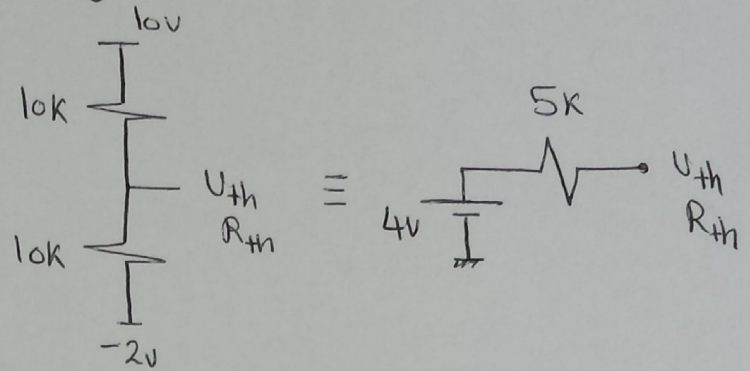 10V
10K
Uth
Rth
10K
-2V
≡
5K
4V
Uth
Rth